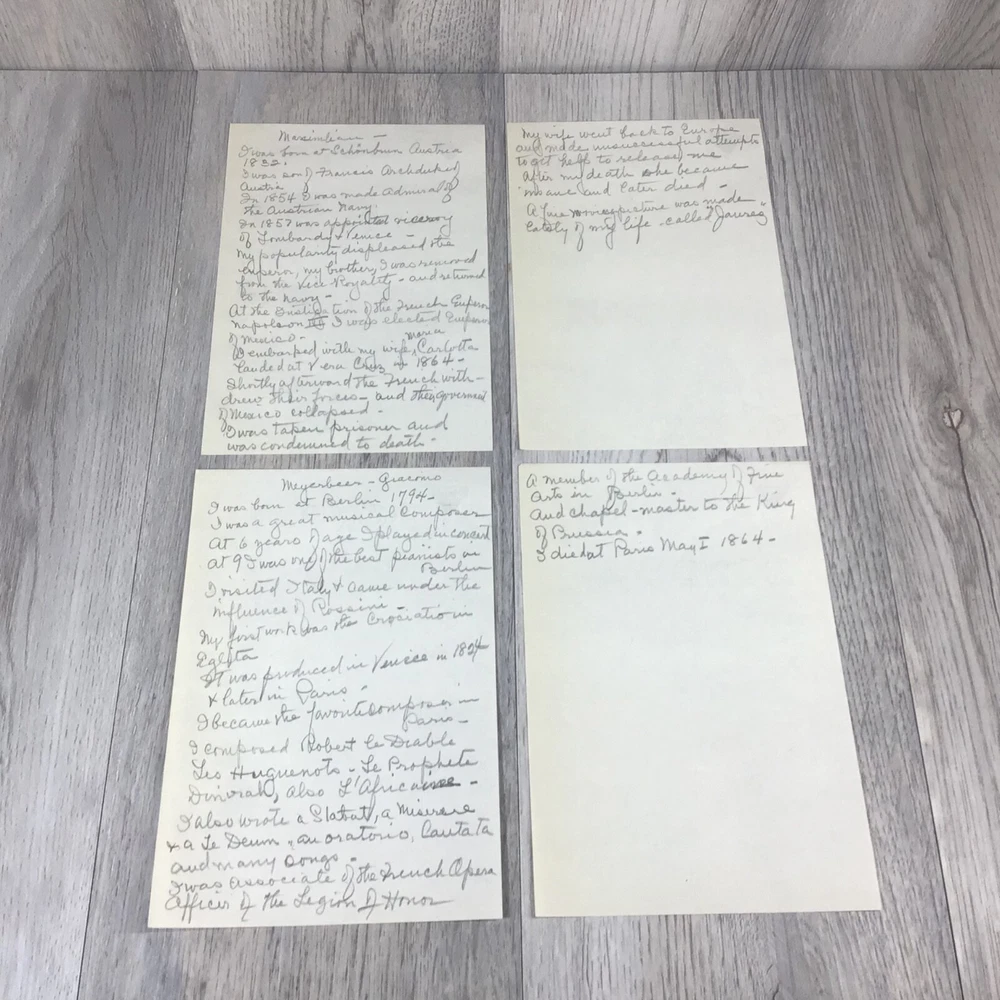 Maximilian —
I was born at Schönbrun Austria
1832.
I was son of Francis Archduke of
Austria
In 1854 I was made Admiral of
the Austrian Navy.
In 1857 was appointed viceroy
of Lombardy & Venice —
My popularity displeased the
emperor, my brother, I was removed
from the Vice Royalty - and returned
to the navy —
At the instigation of the French Emperor
Napoleon III I was elected Emperor
of Mexico —
I embarked with my wife, Maria Carlotta
landed at Vera Cruz in 1864 —
Shortly afterward the French with-
drew their forces — and their government
of Mexico collapsed -
I was taken prisoner and
was condemned to death -
My wife went back to Europe
and made unsuccessful attempts
to get help to release me
After my death she became
insane and later died —
A fine movie picture was made
lately of my life - called "Jaurez"
Meyerbeer - Giacomo
I was born at Berlin 1794 -
I was a great musical composer
At 6 years of age I played in concert
at 9 I was one of the best pianists in
Berlin
I visited Italy & came under the
influence of Rossini -
My first work was the Crociatio in
Egitta
It was produced in Venice in 1824
& later in Paris -
I became the favorite composer in
Paris -
I composed Robert le Diable
Les Huguenots - Le Prophete
Dinorah, also L'Africaine -
I also wrote a Stabat, a Miserere
& a Te Deum, an oratorio, Cantata
and many songs -
I was associate of the French Opera
Officer of the Legion of Honor
A member of the Academy of Fine
Arts in Berlin -
And chapel-master to the King
of Prussia -
I died at Paris May I 1864 -